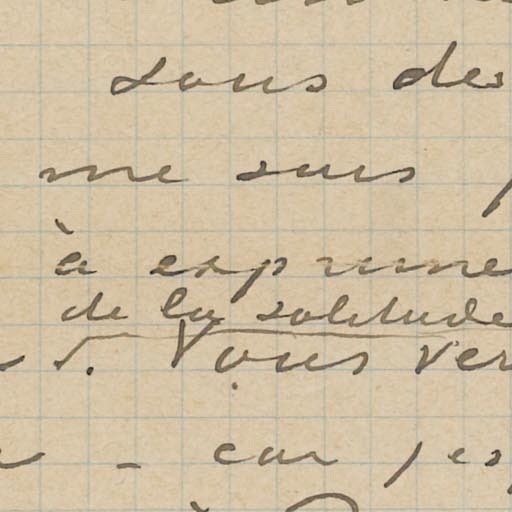 sous des
me suis
à exprime
de la solitude
Vous ver
- car j'es